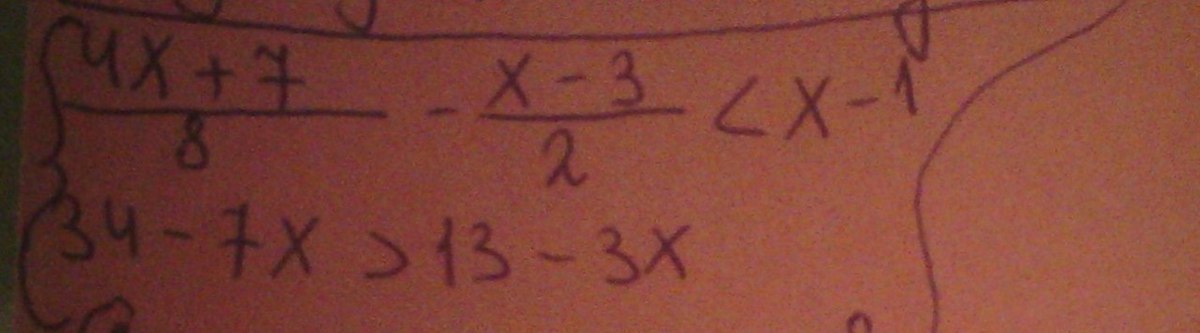 (4x + 7)/8 - (x - 3)/2 < x - 1
34 - 7x > 13 - 3x